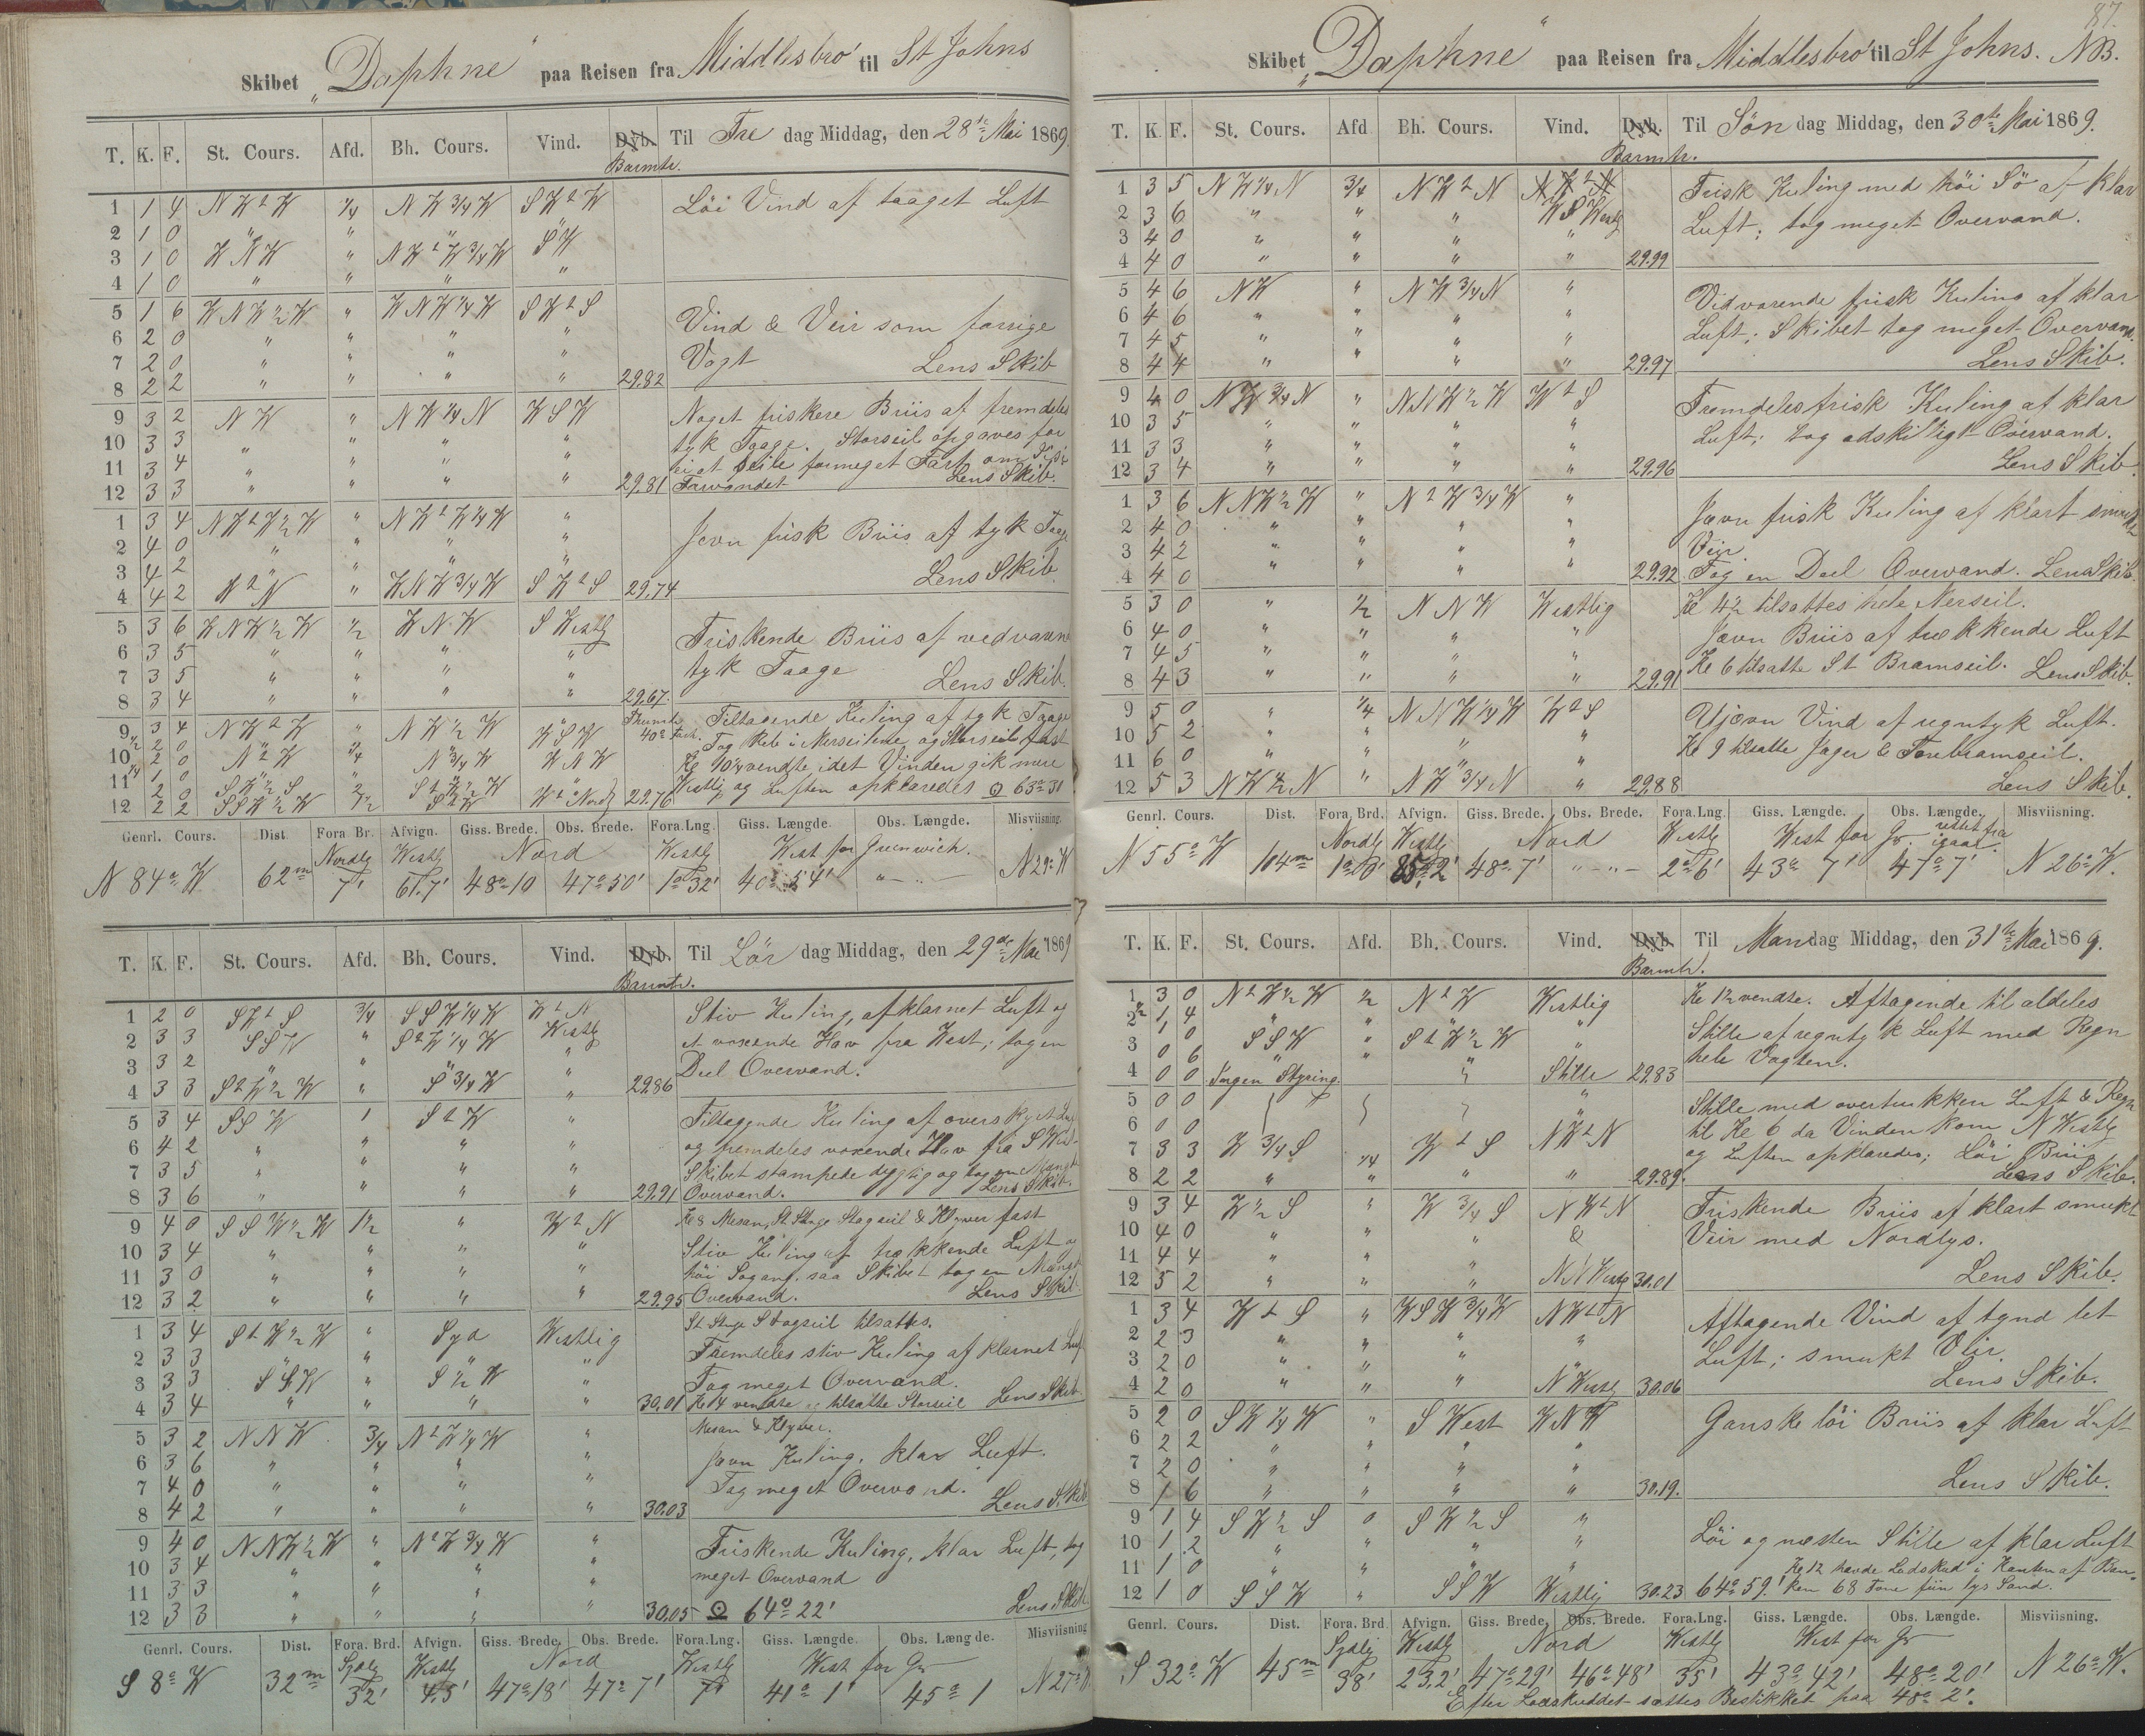 Skibet „Daphne“ paa Reisen fra Middlesbro' til St Johns
T. K. F. St. Cours. Afd. Bh. Cours. Vind. Dyb. Barmtr. Til Fre dag Middag, den 28de Mai 1869
1 1 4 N W t W 1/4 N W 3/4 W S W t W Löi Vind af taaget Luft
2 1 0 " " " "
3 1 0 W N W " N W t W 3/4 W S W
4 1 0 " " " "
5 1 6 W N W 1/2 W " W N W 1/4 W S W t S
6 2 0 " " " " Vind & Veir som forrige
7 2 0 " " " " Vagt Lens Skib
8 2 2 " " " " 29.82
9 3 2 N W " N W 1/4 N W S W Noget friskere Briis af fremdeles
10 3 3 " " " " tyk Taage. Storseil opgaves for
11 3 4 " " " " ei at seile formeget Fart
12 3 3 " " " " 29.81 Farvandet Lens Skib.
1 3 4 N W t W 1/2 W " N W t W 1/4 W "
2 4 0 " " " " Jevn frisk Briis af tyk Taage
3 4 2 " " " " Lens Skib
4 4 2 W t N " W N W 3/4 W S W t S 29.74
5 3 6 W N W 1/2 W 1/2 W N W S Westlg
6 3 5 " " " " Friskende Briis af vedvaren
7 3 5 " " " " tyk Taage Lens Skib.
8 3 4 " " " " 29.67.
9 3 4 N W t W " N W 1/2 W W S W Tiltagende Kuling af tyk Taage
Tog Reb i Merseilene og Storseil fast
10 2 0 N t W 3/4 N 3/4 W W N W Kl 10 1/4 vendte idet Vinden gik mere
12 2 2 S S W 1/2 W 1/2 S t W W t Nordl 29.76 Westlig og Luften opklaredes ☉ 63° 31
Genrl. Cours. Dist. Fora. Br. Afvign. Giss. Brede. Obs. Brede. Fora. Lng. Giss. Længde. Obs. Længde. Misviisning.
Nordlg Westlg Nord Westlg West for Greenwich.
N 84° W 62m 7' 61.7' 48° 10 47° 50' 1° 32' 40° 54' " — " — N 29° W
T. K. F. St. Cours. Afd. Bh. Cours. Vind. Dyb. Barmtr. Til Lör dag Middag, den 29de Mai 1869
1 2 0 S W t S 3/4 S S W 1/4 W W t N Stiv Kuling, afklarnet Luft og
2 3 3 S S W " S t W 1/4 W Westlg et voxende Hav fra West; tog en
3 3 2 " " " " Deel Overvand.
4 3 3 S t W 1/2 W " S 3/4 W " 29.86
5 3 4 S S W 1 S t W " Tiltagende Kuling af overskyet Luft
6 4 2 " " " " og fremdeles voxende Hav fra S West
7 3 5 " " " " Skibet stampede dygtig og tog en Mængde
8 3 6 " " " " 29.91 Overvand. Lens Skib.
9 4 0 S S W 1/2 W 1 1/2 " W t N Kl 8 Mesan, St Stnge Stagseil & Klyver fast
10 3 4 " " " " Stiv Kuling af trækkende Luft og
11 3 0 " " " " höi Sögang, saa Skibet tog en Mængde
12 3 2 " " " " 29.95 Overvand. Lens Skib
1 3 4 S t W 1/2 W " Syd Westlig St Stnge Stagseil tilsattes.
2 3 3 " " " " Fremdeles stiv Kuling af klarnet Luft
3 3 3 S S W " S 1/2 W " Tog meget Overvand.
4 3 4 " " " " 30.01 Kl 4 vendte og tilsatte Storseil Lens Skib.
5 3 2 N N W 3/4 N t W 1/4 W " Mesan & Klyver.
6 3 6 " " " " Jevn Kuling, klar Luft.
7 4 0 " " " " Tog meget Overvand.
8 4 2 " " " " 30.03 Lens Skib
9 4 0 N N W 1/2 W " N t W 3/4 W " Friskende Kuling, klar Luft, tog
10 3 4 " " " " meget Overvand
11 3 3 " " " " Lens Skib
12 3 3 " " " " 30.05 ☉ 64° 22'
Genrl. Cours. Dist. Fora. Brd. Afvign. Giss. Brede. Obs. Brede. Fora. Lng. Giss. Længde. Obs. Længde. Misviisning
Sydlg Westlg Nord Westlg West for Gr
S 8° W 32m 32' 4.5' 47° 18' 47° 7' 7' 41° 1' 45° 1 N 27° W
87.
Skibet „Daphne“ paa Reisen fra Middlesbro' til St Johns. NB.
T. K. F. St. Cours. Afd Bh. Cours. Vind. Dyb. Barmtr. Til Søn dag Middag, den 30te Mai 1869.
1 3 5 N W 1/4 N 3/4 N W t N N W t N Frisk Kuling med höi Sö af klar
2 3 6 " " " W S Westlg Luft; tog meget Overvand.
3 4 0 " " " "
4 4 0 " " " " 29.99
5 4 6 N W " N W 3/4 N " Vidvarende frisk Kuling af klar
6 4 6 " " " " Luft; Skibet tog meget Overvand.
7 4 5 " " " " Lens Skib.
8 4 4 " " " " 29.97
9 4 0 N W 3/4 N " N N W 1/2 W W t S Fremdeles frisk Kuling af klar
10 3 5 " " " " Luft; tog adskilligt Overvand.
11 3 3 " " " " Lens Skib
12 3 4 " " " " 29.96
1 3 6 N N W 1/2 W " N t W 3/4 W " Jevn frisk Kuling af klart smukt
2 4 0 " " " " Veir.
3 4 2 " " " "
4 4 0 " " " " 29.92 Tog en Deel Overvand. Lens Skib.
5 3 0 " 1/2 N N W Westlig Kl 4 1/2 tilsattes hele Merseil.
6 4 0 " " " " Jevn Briis af trækkende Luft
7 4 5 " " " " Kl 6 tilsatte St Bramseil. Lens Skib.
8 4 3 " " " " 29.91
9 5 0 " 1/4 N N W 1/4 W W t S Ujævn Vind af regntyk Luft.
10 5 2 " " " " Kl 9 tilsatte Jager & Forebramseil.
11 6 0 " " " "
12 5 3 N W 1/2 N " N W 3/4 N " 29.88 Lens Skib.
Genrl. Cours. Dist. Fora. Brd. Afvign. Giss. Brede. Obs. Brede. Fora. Lng. Giss. Længde. Obs. Længde. Misviisning.
Nordlg Westlg Nord Westlg West for Gr. rettet fra igaar.
N 55° W 104m 1° 0' 85.2' 48° 7' " — " — 2° 6' 43° 7' 47° 7' N 26° W.
T. K. F. St. Cours. Afd. Bh. Cours. Vind. Dyb. Barmtr. Til Mandag Middag, den 31te Mai 1869.
1 3 0 N t W 1/2 W 1/2 N t W Westlig Kl 1 1/2 vendte. Aftagende til aldeles
2 1 4 " " " " Stille af regntyk Luft med Regn
1 0 S S W " S t W 1/2 W " hele Vagten.
3 0 6 " " " "
4 0 0 Ingen Styring Stille 29.83
5 0 0 " Stille med overtrukken Luft & Regn
6 0 0 til Kl 6 da Vinden kom N Westlg
7 3 3 W 3/4 S 1/4 W t S N W t N og Luften opklaredes; Löi Briis
8 2 2 " " " " 29.89. Lens Skib.
9 3 4 W 1/2 S " W 3/4 S N W t N Friskende Briis af klart smukt
10 4 0 " " " & Veir med Nordlys.
11 4 4 " " "
12 5 2 " " " N N Westlg 30.01 Lens Skib.
1 3 4 W t S " W S W 3/4 W N W t N Aftagende Vind af tynd let
2 2 3 " " " " Luft; smukt Veir.
3 2 0 " " "
4 2 0 " " " N Westlg 30.06 Lens Skib.
5 2 0 S W 1/4 W " S West W N W Ganske löi Briis af klar Luft
6 2 2 " " " "
7 2 0 " " " "
8 1 6 " " " " 30.19. Lens Skib.
9 1 4 S W 1/2 S 0 S W 1/2 S " Löi og næsten Stille af klar Luft
10 1 2 " " " "
11 1 0 " " " " Kl 12 havde Lodskud i Kanten af Ban-
12 1 0 S S W " S S W Westlig 30.23 64° 59' ken 68 Favne fiin lys Sand.
Genrl. Cours. Dist. Fora. Brd. Afvign. Giss. Brede. Obs. Brede. Fora. Lng. Giss. Længde. Obs. Længde. Misviisning.
Sydlg Westlg Nord Westlg West for Gr
S 32° W 45m 38' 23.2' 47° 29' 46° 48' 35' 43° 42' 48° 20' N 26° W.
Efter Lodskuddet sættes Bestikket paa 48° 2'.